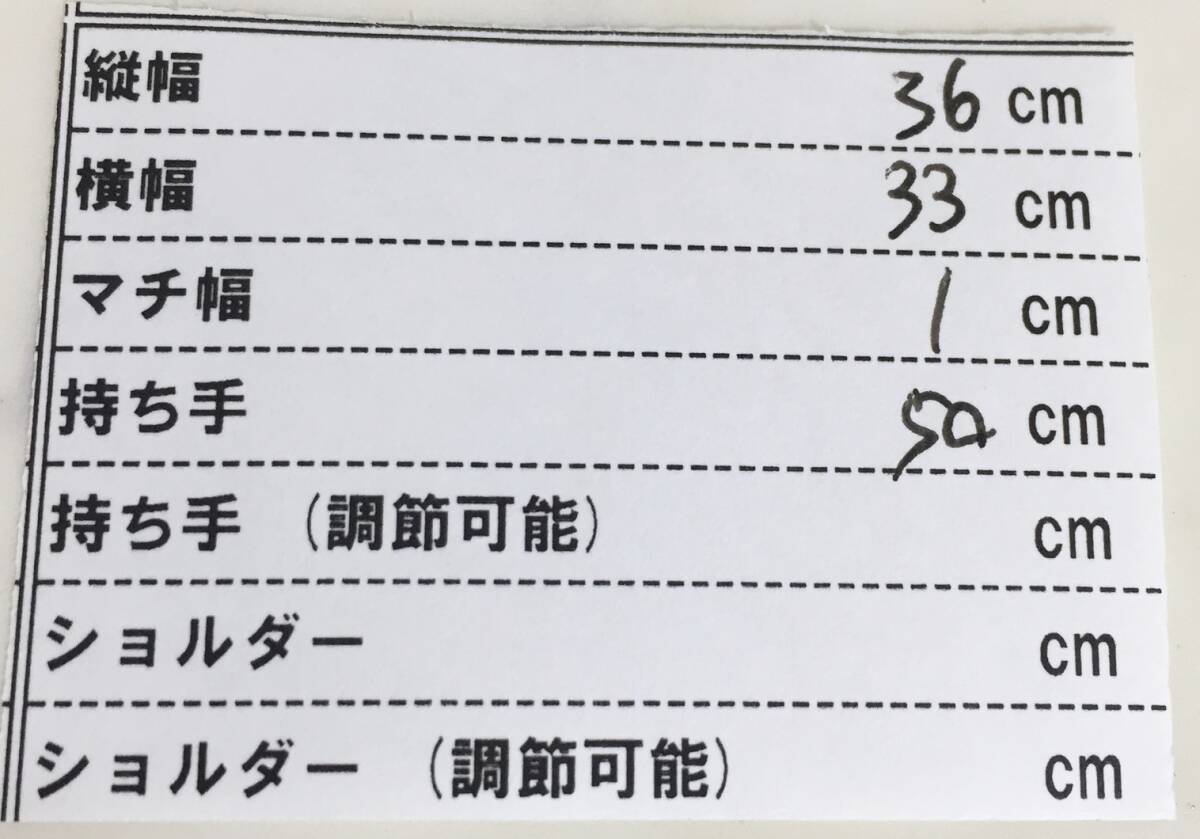 縦幅 36 cm
横幅 33 cm
マチ幅 1 cm
持ち手 50 cm
持ち手 (調節可能) cm
ショルダー cm
ショルダー (調節可能) cm